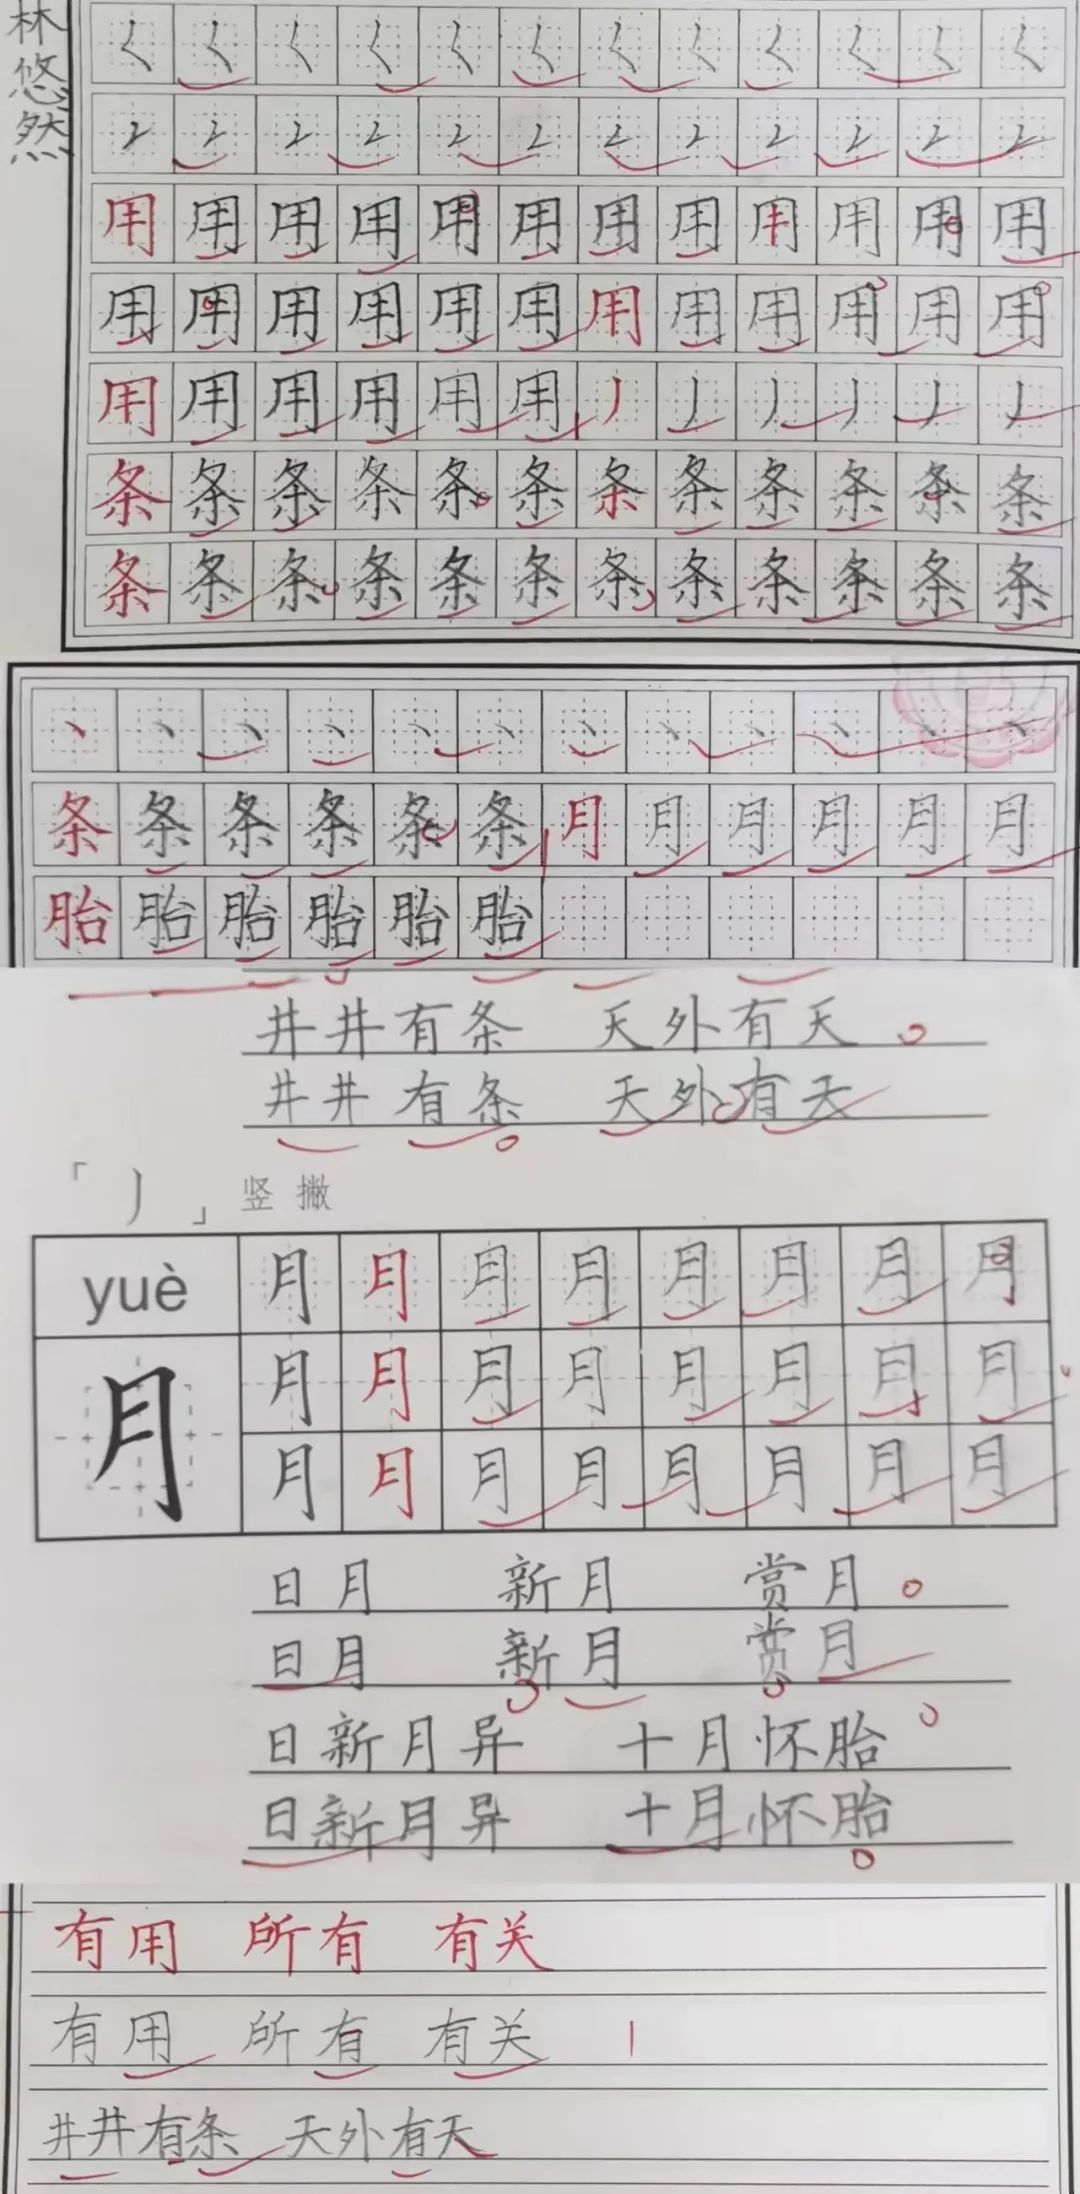 林悠然
用用用用用用用用用用用用
用用用用用用用用用用用用
用用用用用用丿丿丿丿丿丿
条条条条条条条条条条条条
条条条条条条条条条条条条
丶丶丶丶丶丶丶丶丶丶丶丶
条条条条条条月月月月月月
胎胎胎胎胎胎
井井有条 天外有天
井井有条 天外有天
「丿」竖撇
yuè 月月月月月月月月
月 月月月月月月月月
月月月月月月月月
日月 新月 赏月
日月 新月 赏月
日新月异 十月怀胎
日新月异 十月怀胎
有用 所有 有关
有用 所有 有关
井井有条 天外有天